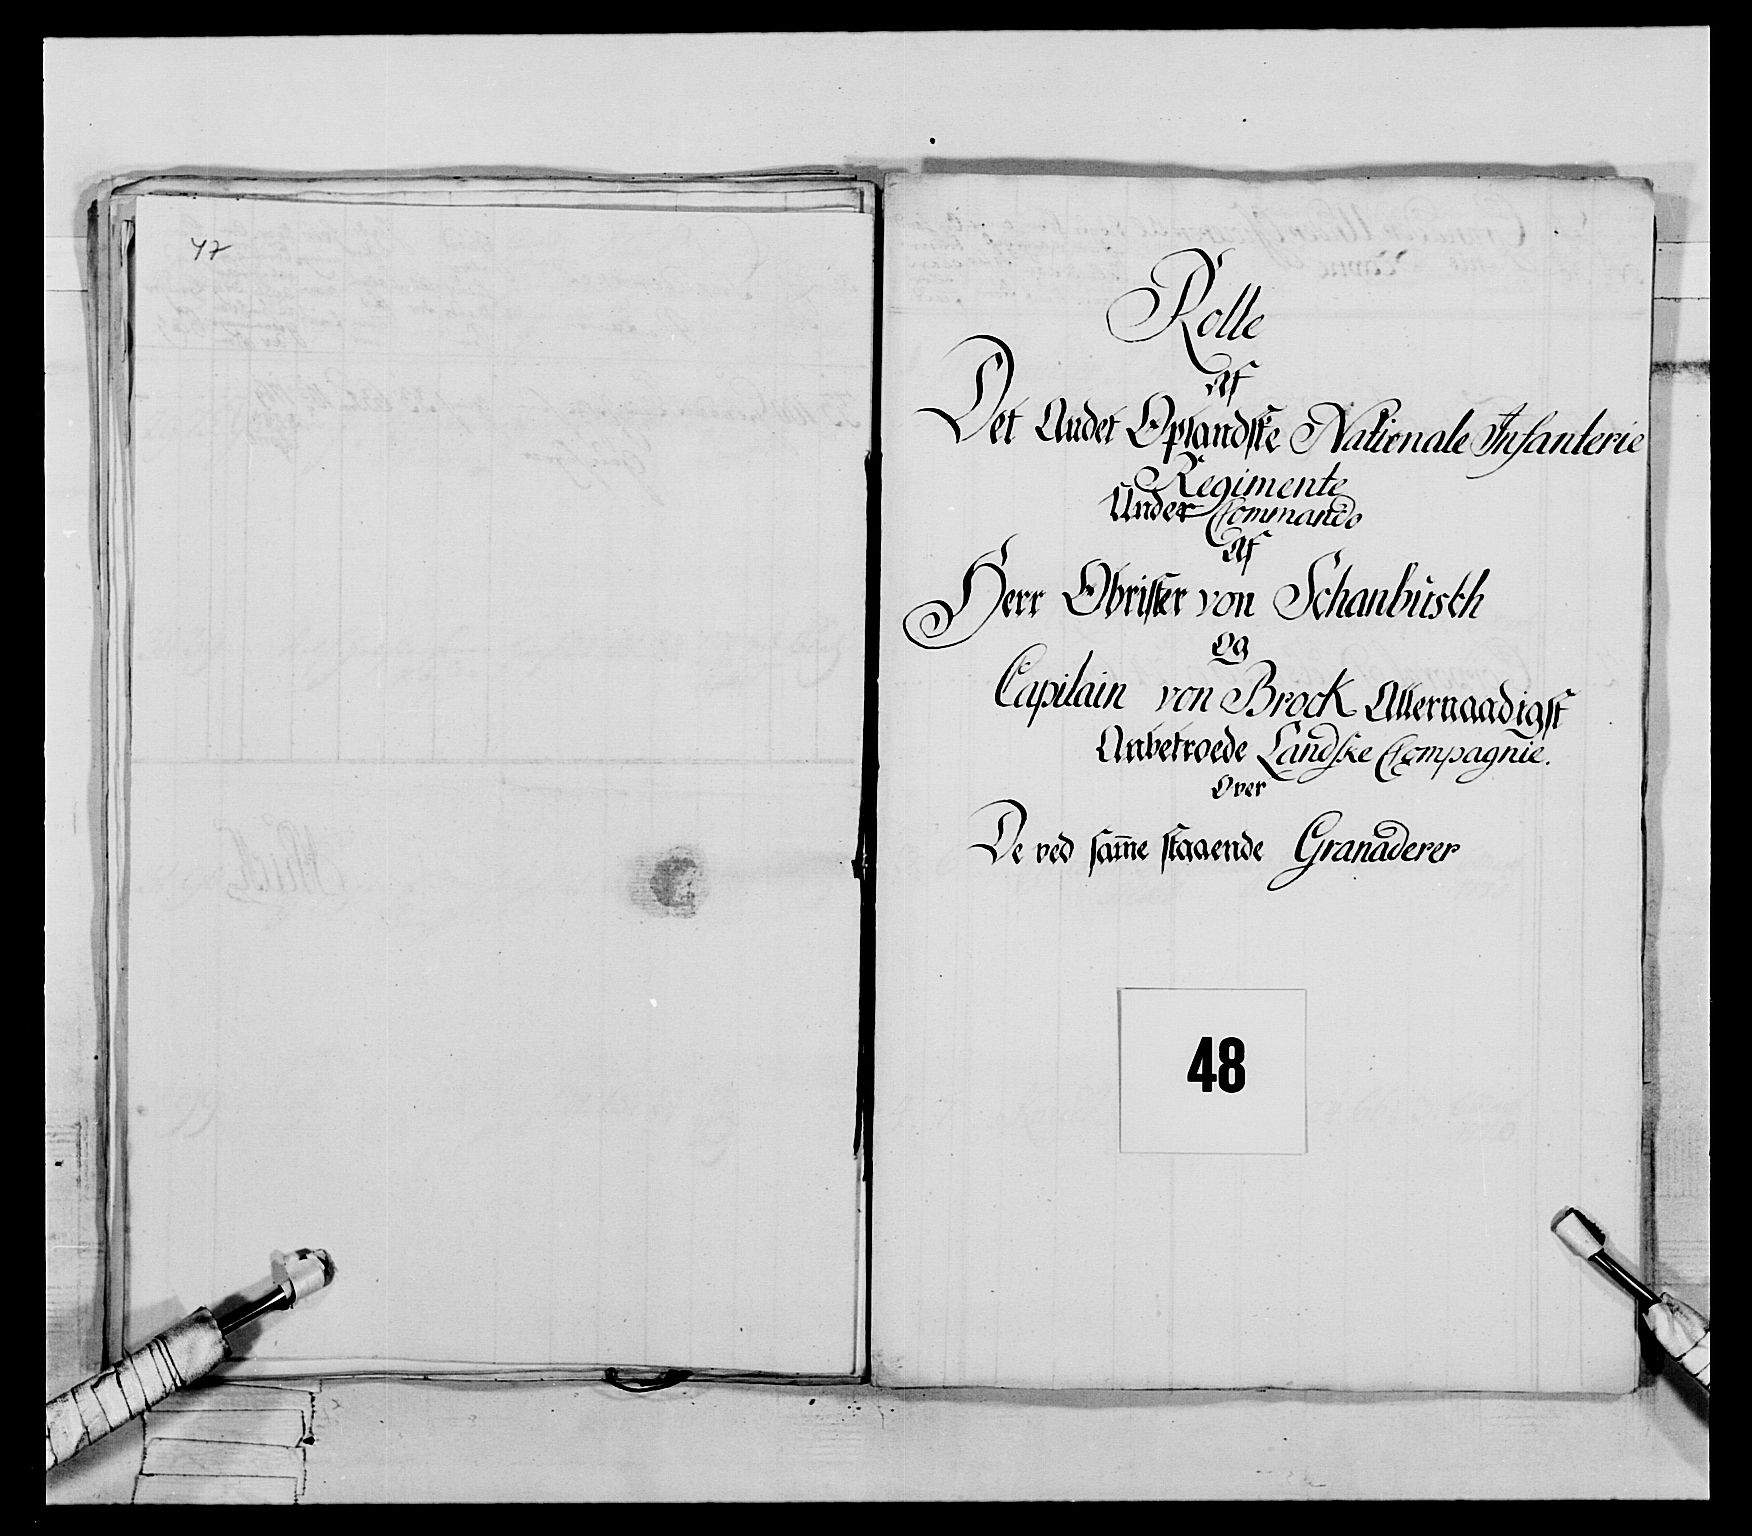 47
Rolle
Af
Det Andet Oplandske Nationale Infanterie
Regimente
Under Commando
Af
Herr Obrister von Schanbusch
Og
Capitain von Brock Allernaadigst
Anbetroede Landske Compagnie.
Over
De ved sam̅e staaende Granaderer
48